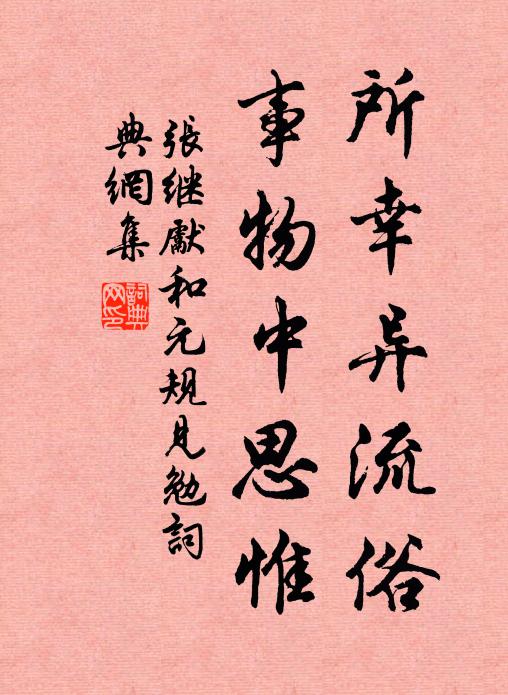 所幸异流俗
事物中思惟
張继獻和元规見勉詞
典網集
詞典网印